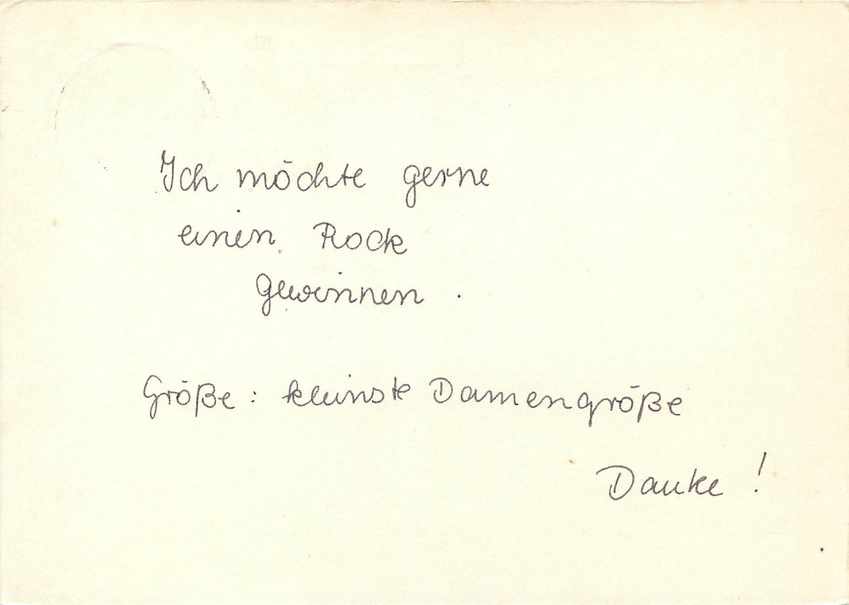 Ich möchte gerne
einen Rock
gewinnen.
Größe: kleinste Damengröße
Danke!